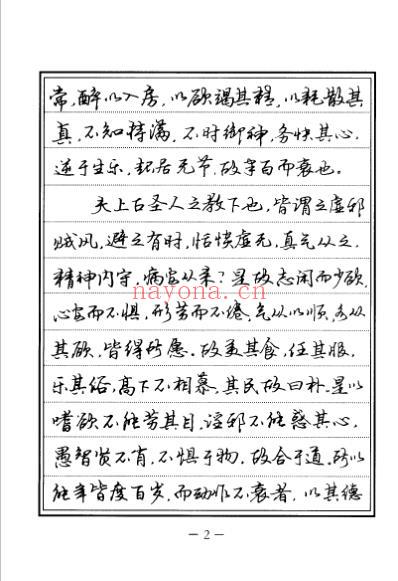 常,醉以入房,以欲竭其精,以耗散其
真,不知持满,不时御神,务快其心,
逆于生乐,起居无节,故半百而衰也。
夫上古圣人之教下也,皆谓之虚邪
贼风,避之有时,恬惔虚无,真气从之,
精神内守,病安从来?是故志闲而少欲,
心安而不惧,形劳而不倦,气从以顺,各从
其欲,皆得所愿。故美其食,任其服,
乐其俗,高下不相慕,其民故曰朴。是以
嗜欲不能劳其目,淫邪不能惑其心,
愚智贤不肖,不惧于物,故合于道。所以
能年皆度百岁,而动作不衰者,以其德
nayona.cn
— 2 —